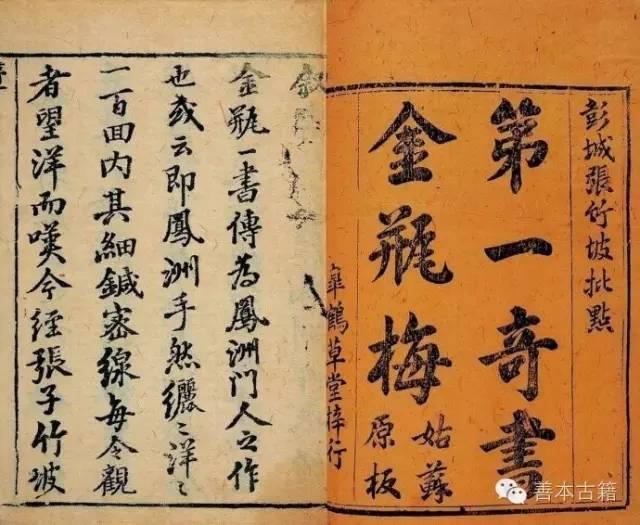 彭城張竹坡批點
第一奇書
金瓶梅
姑蘇
原板
皐鶴草堂梓行
叙
金瓶一書傳為鳳洲門人之作
也或云即鳳洲手然纚〻洋〻
一百回内其細鍼密線每令觀
者望洋而嘆今經張子竹坡
善本古籍